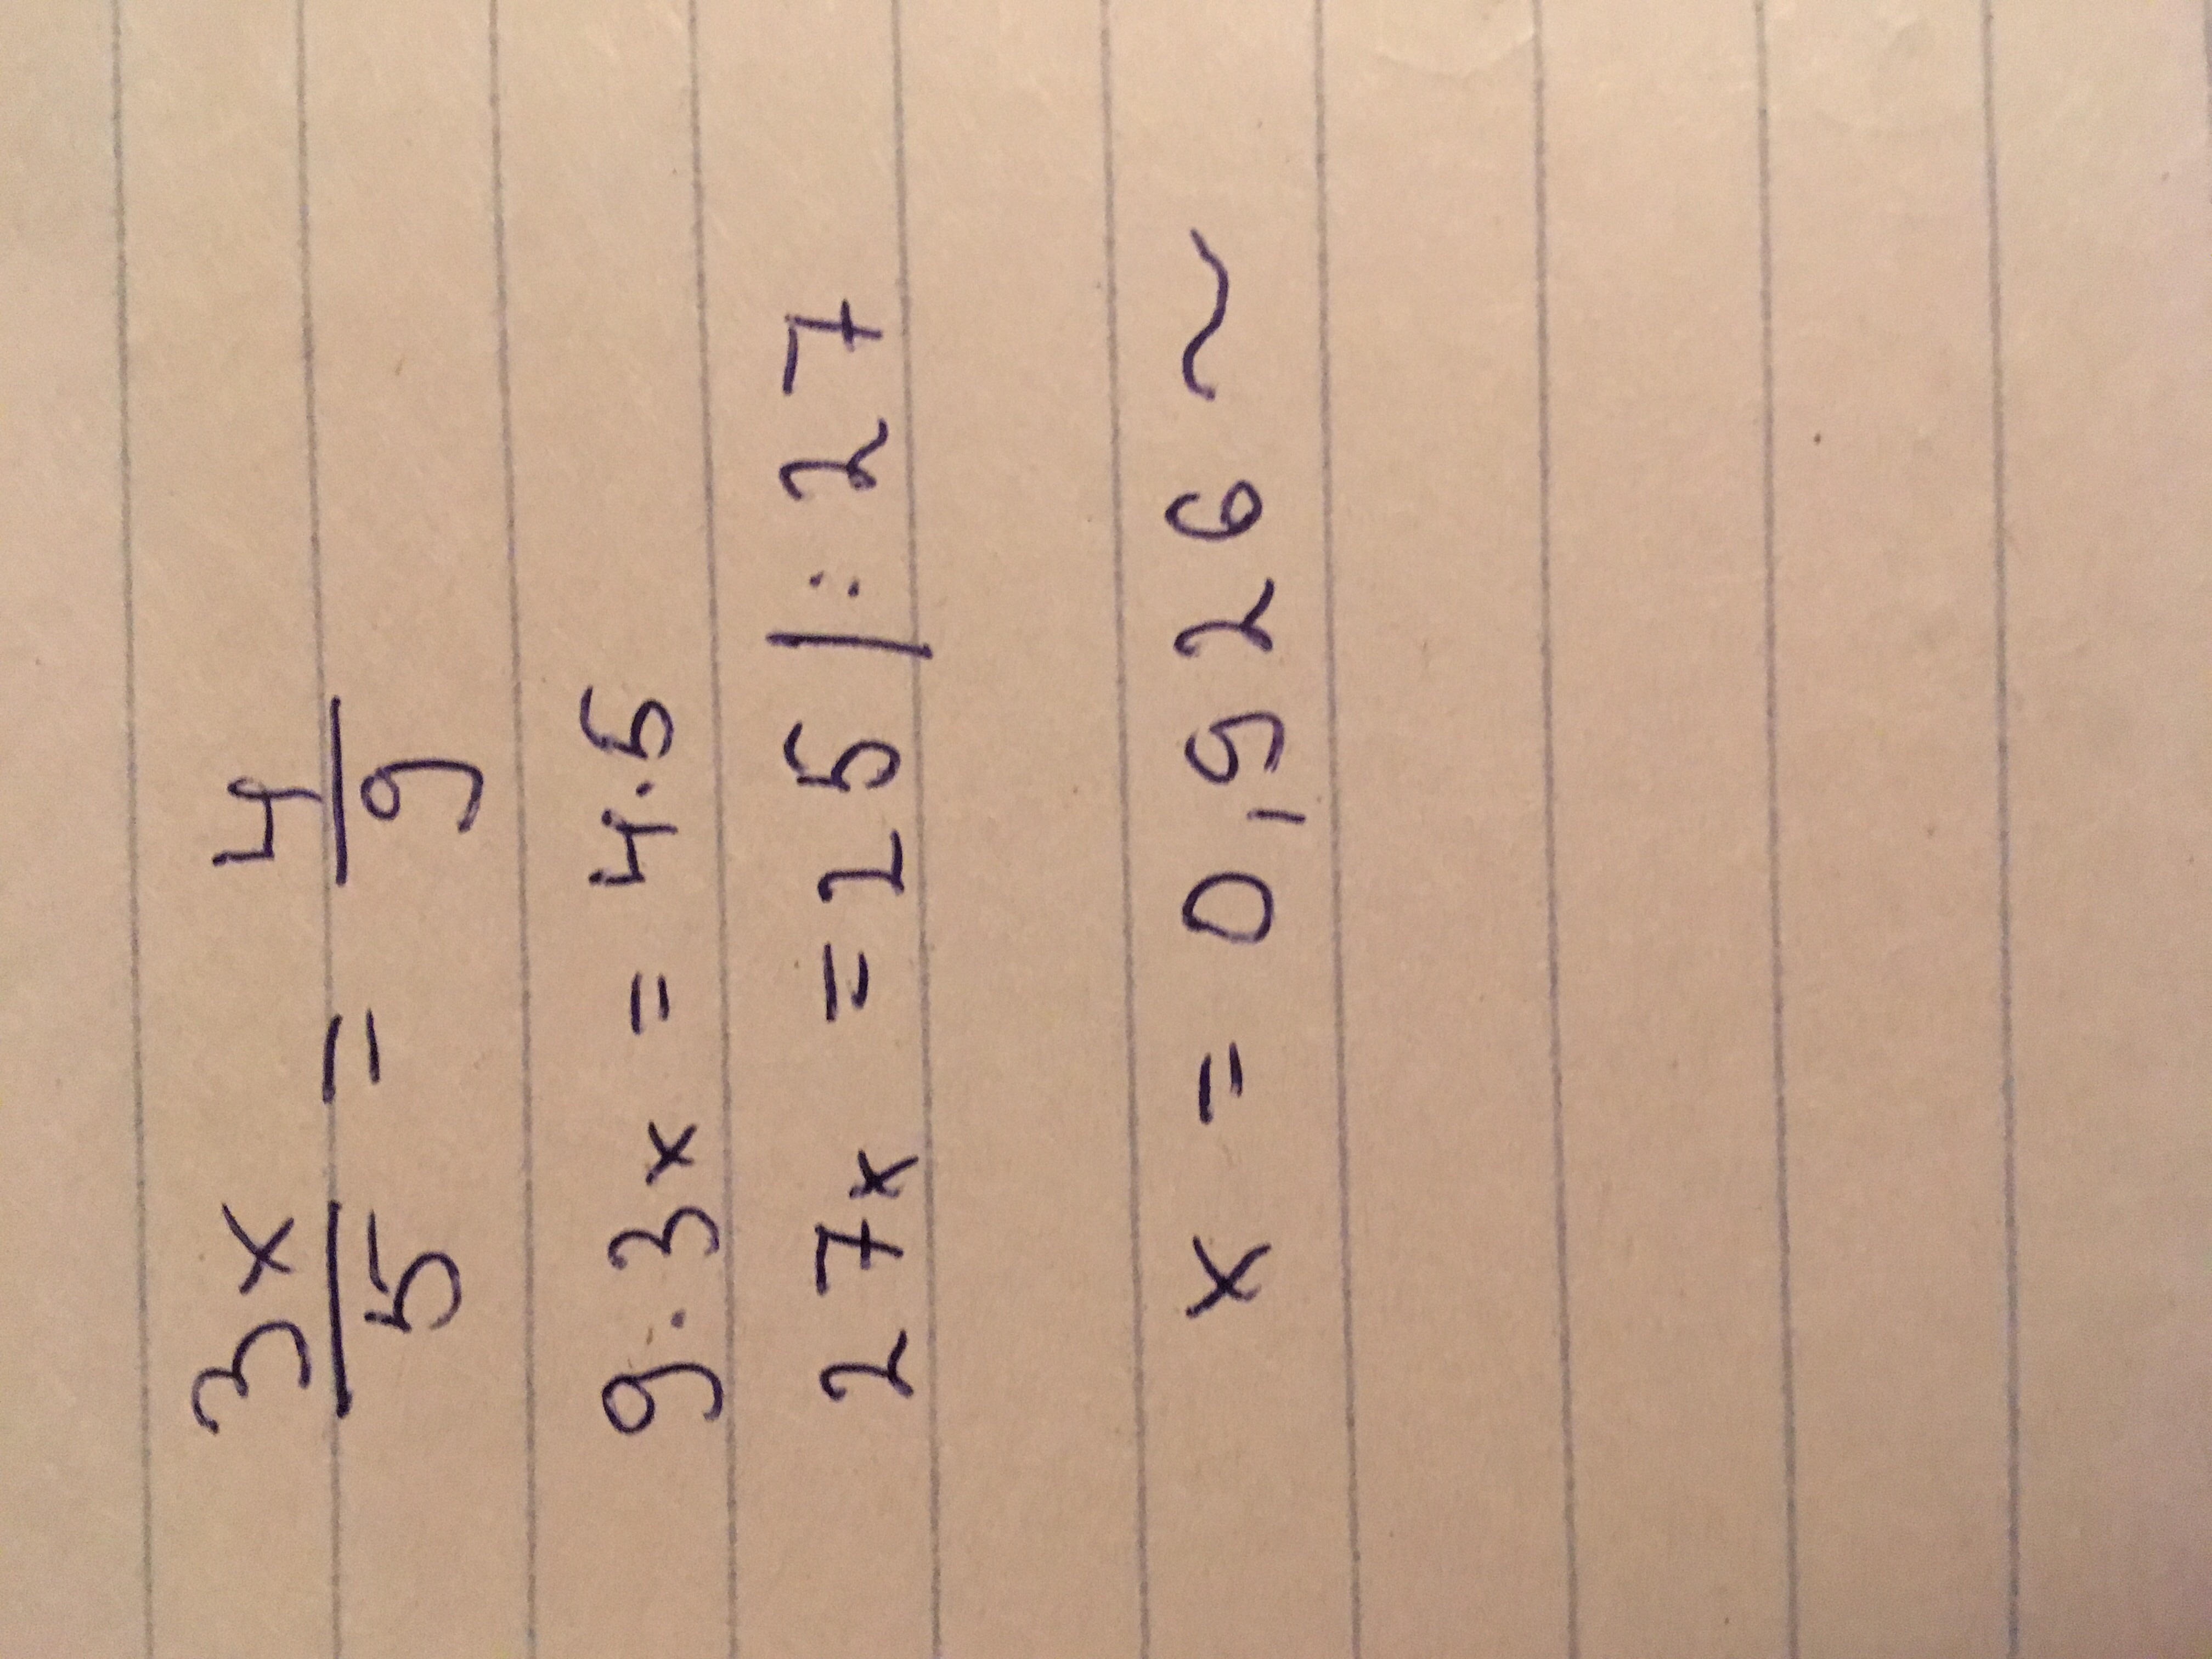 3x/5 = 4/9
9·3x = 4·5
27x = 25 |: 27
x = 0,926 ~